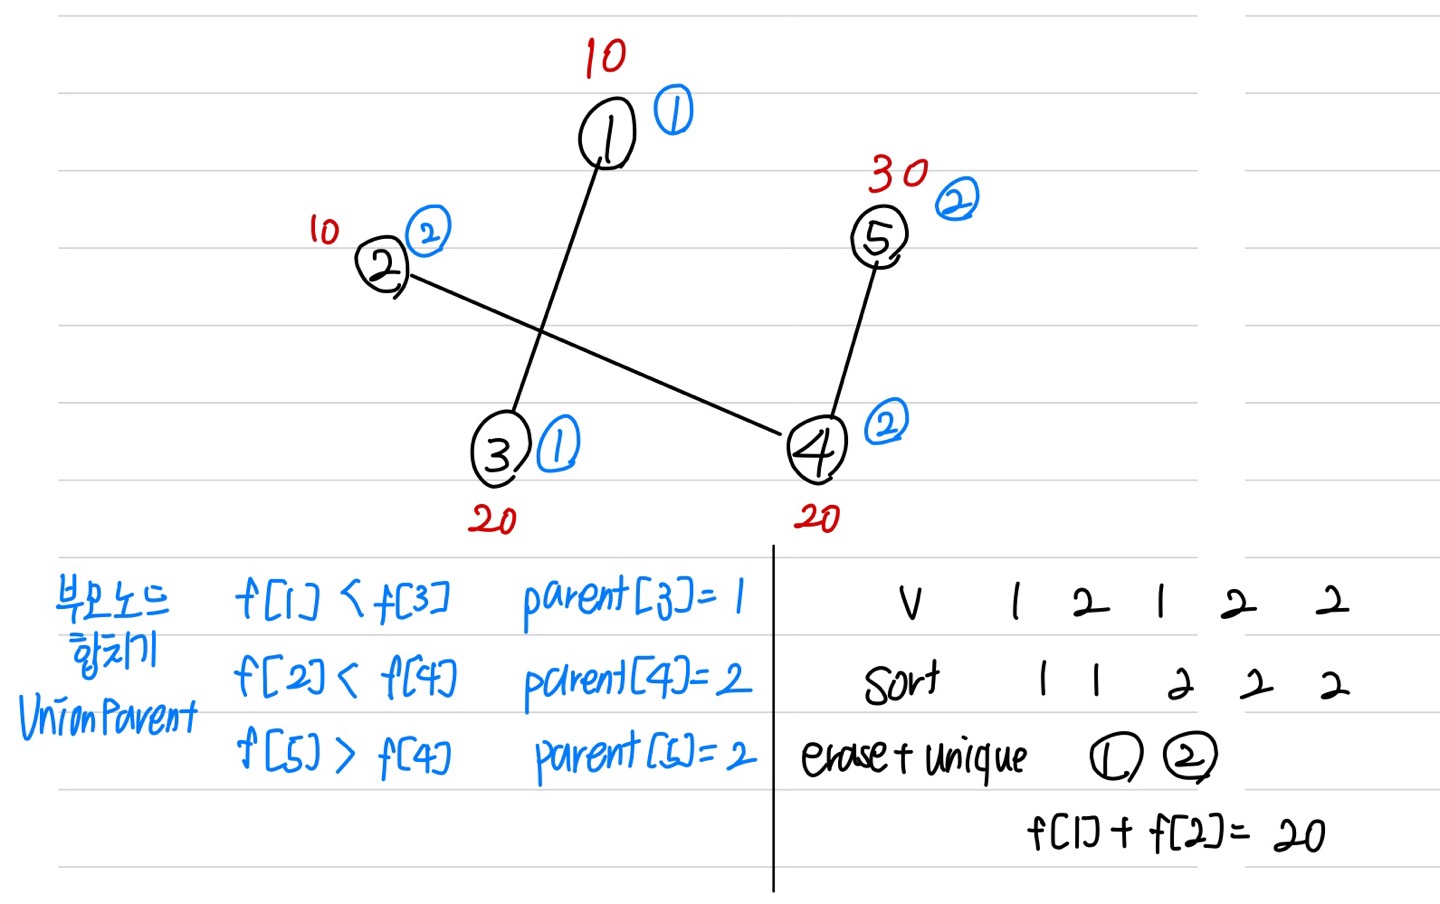 10
① ①
30
5 ②
10 2 ②
3 ①
4 ②
20
20
부모노드
합치기
UnionParent
f[1] < f[3] parent[3]= 1
f[2] < f[4] parent[4]= 2
f[5] > f[4] parent[5]= 2
V 1 2 1 2 2
Sort 1 1 2 2 2
erase + unique ① ②
f[1] + f[2] = 20